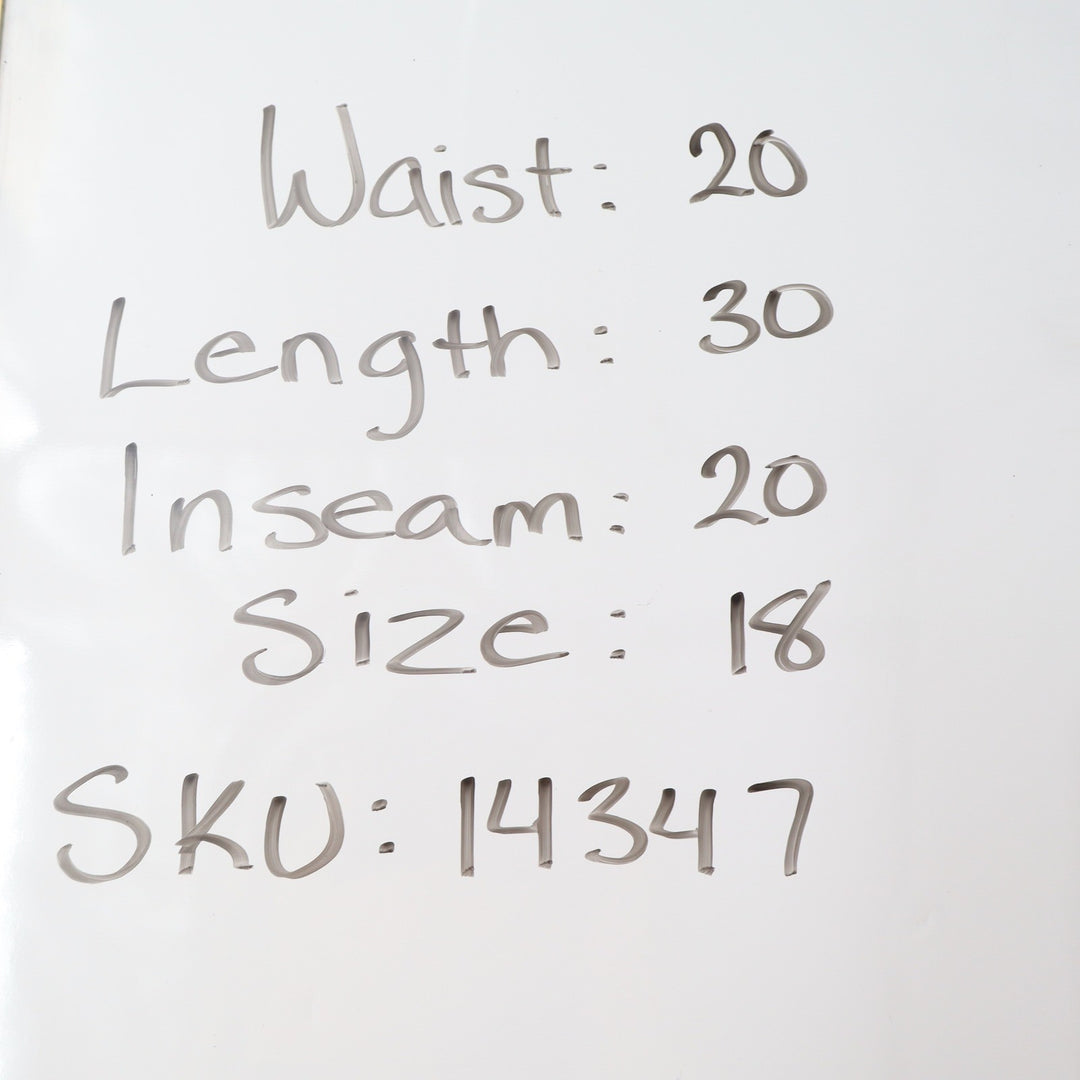 Waist: 20
Length: 30
Inseam: 20
Size: 18
SKU: 14347